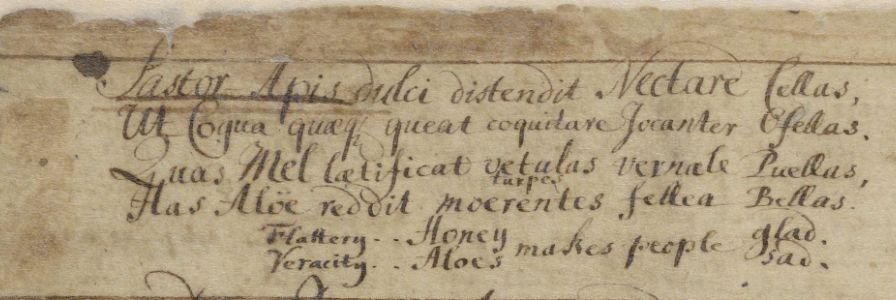 Pastor Apis dulci distendit Nectare Cellas,
Ut Coqua quæq; queat coquitare Jocanter Ofellas.
Quas Mel lætificat vetulas vernale Puellas,
turpes
Has Aloë reddit moerentes fellea Bellas.
Flattery . . Honey makes people glad.
Veracity . . Aloes sad.